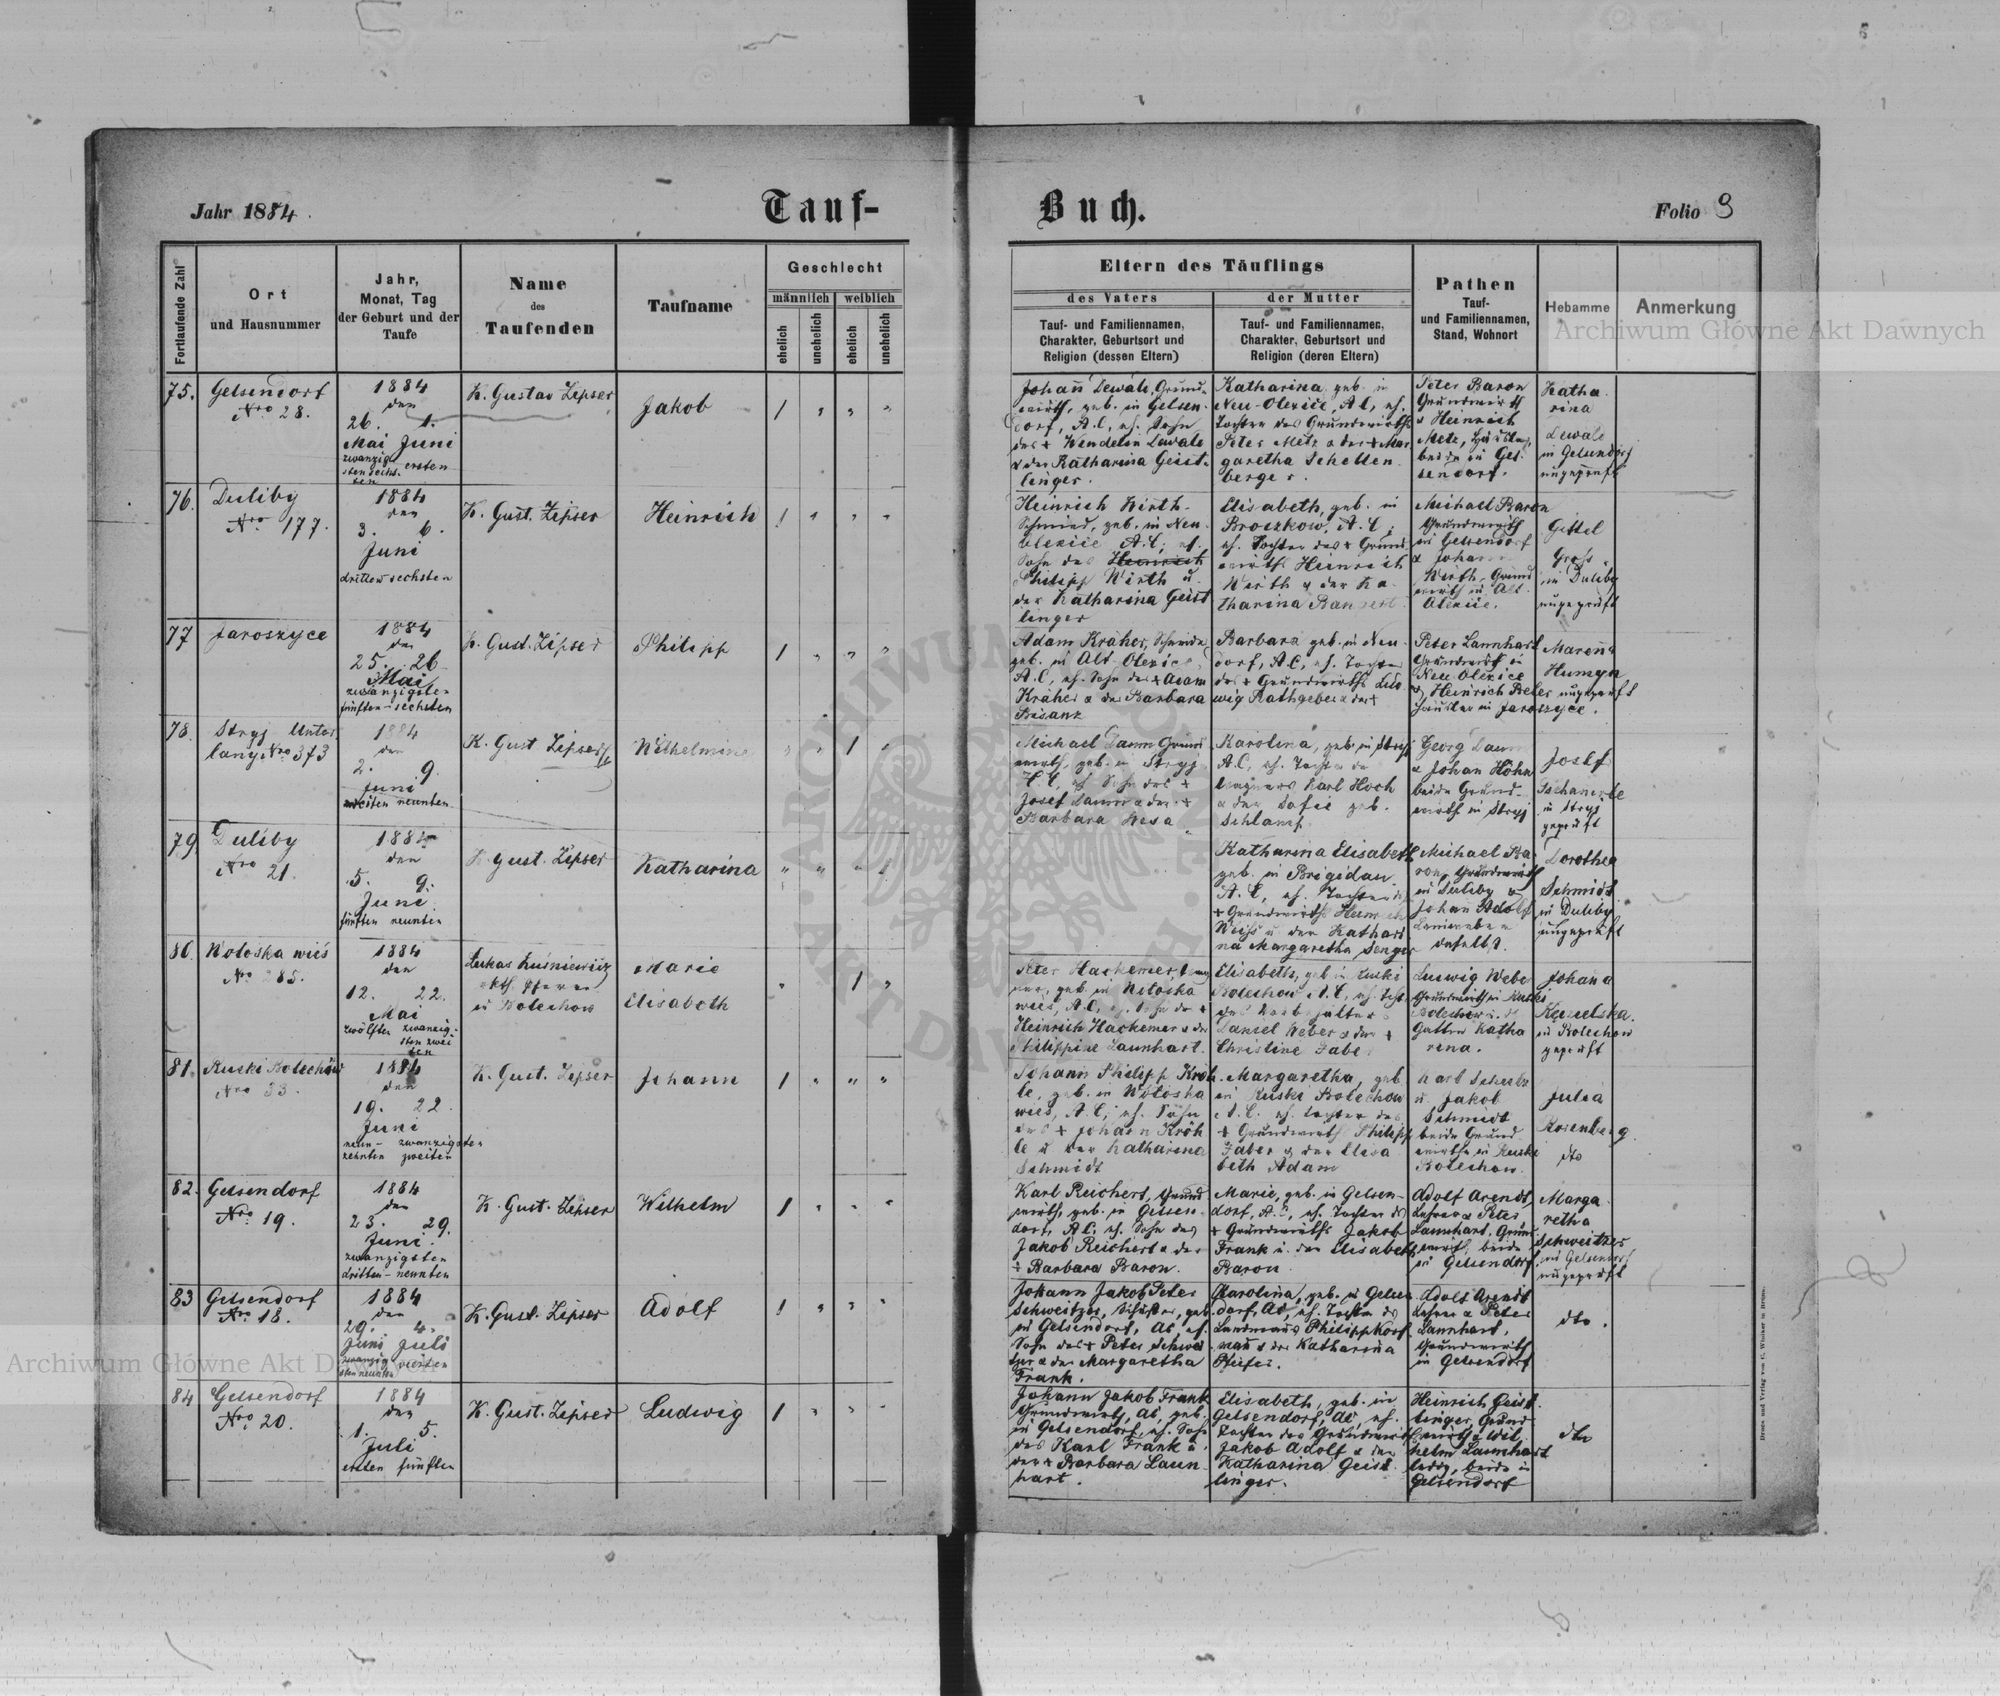 Jahr 1884.
Tauf-
Buch.
Folio 9
Fortlaufende Zahl
Ort
und Hausnummer
Jahr,
Monat, Tag
der Geburt und der
Taufe
Name
des
Taufenden
Taufname
Geschlecht
männlich
weiblich
ehelich
unehelich
ehelich
unehelich
Eltern des Täuflings
des Vaters
der Mutter
Tauf- und Familiennamen,
Charakter, Geburtsort und
Religion (dessen Eltern)
Tauf- und Familiennamen,
Charakter, Geburtsort und
Religion (deren Eltern)
Pathen
Tauf-
und Familiennamen,
Stand, Wohnort
Hebamme
Anmerkung
Archiwum Główne Akt Dawnych
75.
Gelsendorf
Nro 28.
1884
den
26. 1.
Mai Juni
zwanzig- ersten
sten sechs-
ten
K. Gustav Zipser
Jakob
1 " " "
Johann Dewald, Grund-
wirth, geb. in Gelsen-
dorf, A.C., eh. Sohn
des + Wendelin Dewald
u der Katharina Geist-
linger.
Katharina geb. in
Neu-Olexice, A.C., eh.
Tochter des Grundwirths
Peter Metz u der + Mar
garetha Schellen
berger.
Peter Baron
Grundwirth
u Heinrich
Metz,
beide in Gel-
sendorf.
Katha
rina
Dewald
in Gelsendorf
ungeprüft
76.
Duliby
Nro 177.
1884
den
3. 6.
Juni
dritten sechsten
K. Gust. Zipser
Heinrich
1 " " "
Heinrich Wirth
Schmied, geb. in Neu
Olexice A.C., eh.
Sohn des Heinrich
Philipp Wirth u.
der Katharina Geist
linger
Elisabeth, geb. in
Broszkow, A.C.,
eh. Tochter des + Grund
wirths Heinrich
Wirth u der Ka-
tharina
Michael Baron
Grundwirth
in Gelsendorf
u Johann
Wirth, Grund
wirth in Alt
Olexice.
Gittel
Gross
in Duliby
ungeprüft
77
Jaroszyce
1884
den
25. 26.
Mai
zwanzigsten
fünften - sechsten
K. Gust. Zipser
Philipp
1 " " "
Adam Kräher,
geb. in Alt Olexice,
A.C., eh. Sohn des + Adam
Kräher u der Barbara
Bisanz
Barbara geb. in Neu-
dorf, A.C., eh. Tochter
des + Grundwirths Lud
wig Rathgeber u der +
Peter Launhart
Grundwirth in
Neu Olexice
u Heinrich Peter
in Jaroszyce.
Humyn
ungeprüft
78.
Stryj Unter
lany Nro 373
1884
den
2. 9.
Juni
zweiten neunten
K. Gust Zipser
Wilhelmine
" " 1 "
Michael Daum Grund
wirth, geb. in Stryj
H.C., eh Sohn des +
Josef Daum u der +
Barbara Hesa
Karolina, geb. in Stryj
A.C., eh. Tochter de
Wagners Karl Hoch
u der Sofie geb.
Schlamp
Georg Daum
u Johan Höhn
beide Grund-
wirth in Stryj
Josefa
in Stryj
geprüft
79
Duliby
Nro 21.
1884
den
5. 9.
Juni
fünften neunten
K. Gust. Zipser
Katharina
" " "
Katharina Elisabeth
geb. in Brigidau
A.C., eh. Tochter des
+ Grundwirths Heinrich
Weiss u der Kathari
na Margaretha Senger
Michael Ba-
ron, Grundwirth
in Duliby u
Johann Adolf
daselbst.
Dorothea
Schmidt
in Duliby
ungeprüft
80.
Woloska wieś
Nro 285.
1884
den
12. 22.
Mai
zwölften zwanzig-
sten zwei
ten
Lukas
in Bolechow
Marie
Elisabeth
" 1 "
Peter Hackemer,
geb. in Woloska
wieś, A.C., eh. Sohn der +
Heinrich Hackemer u der
Philippine Launhart.
Elisabeth, geb in Ruski
Bolechow A.C., eh. Toch.
Daniel Weber u der +
Christine Faber
Ludwig Weber
Grundwirth in Ruski
Bolechow u. d.
Gattin Katha
rina.
Johanna
in Bolechow
geprüft
81.
Ruski Bolechów
Nro 33.
1884
den
19. 22.
Juni
neun- zwanzigsten
zehnten zweiten
K. Gust. Zipser
Johann
1 " " "
Johann Philipp Kröh
le, geb. in Woloska
wies, A.C., eh. Sohn
des + Johann Kröh
le u der Katharina
Schmidt
Margaretha, geb.
in Ruski Bolechow
A.C. eh. Tochter des
+ Grundwirth Philipp
Faber u der Elisa
beth Adam
Karl
u. Jakob
Schmidt
beide Grund
wirthe in Ruski
Bolechow.
Julia
Rosenberg
dto
82.
Gelsendorf
Nro 19.
1884
den
23. 29.
Juni
zwanzigsten
dritten - neunten
K. Gust. Zipser
Wilhelm
1 " " "
Karl Reichert, Grund
wirth, geb. in Gelsen-
dorf, A.C., eh. Sohn des
Jakob Reichert u der
+ Barbara Baron.
Marie, geb. in Gelsen-
dorf, A.C., eh. Tochter des
+ Grundwirths Jakob
Frank u. der Elisabeth
Baron
Adolf Arendt,
Lehrer u Peter
Launhart, Grund
wirth, beide
in Gelsendorf.
Marga
retha
Schweitzer
in Gelsendorf
ungeprüft
83
Gelsendorf
Nro 18.
1884
den
29. 4.
Juni Juli
zwanzig vierten
sten neunten
K. Gust. Zipser
Adolf
1 " " "
Johann Jakob Peter
Schweitzer, Schuster, geb.
in Gelsendorf, AC, eh.
Sohn des + Peter Schwei
tzer u der Margaretha
Frank.
Karolina, geb. in Gelsen
dorf, AC, eh. Tochter des
Landmanns Philipp Korf
mann u der Katharina
Pfeifer.
Adolf Arendt
Lehrer u Peter
Launhart,
Grundwirth
in Gelsendorf
dto.
84
Gelsendorf
Nro 20.
1884
den
1. 5.
Juli
ersten fünften
K. Gust. Zipser
Ludwig
1 " " "
Johann Jakob Frank
Grundwirth, AC, geb.
in Gelsendorf, eh. Sohn
des Karl Frank u.
der + Barbara Laun
hart.
Elisabeth, geb. in
Gelsendorf, AC, eh.
Tochter des Grundwirth
Jakob Adolf u der
Katharina Geist
linger.
Heinrich Geist
linger, Grund
wirth u Wil
helm Launhart
ledig, beide in
Gelsendorf
dto
Archiwum Główne Akt Dawnych